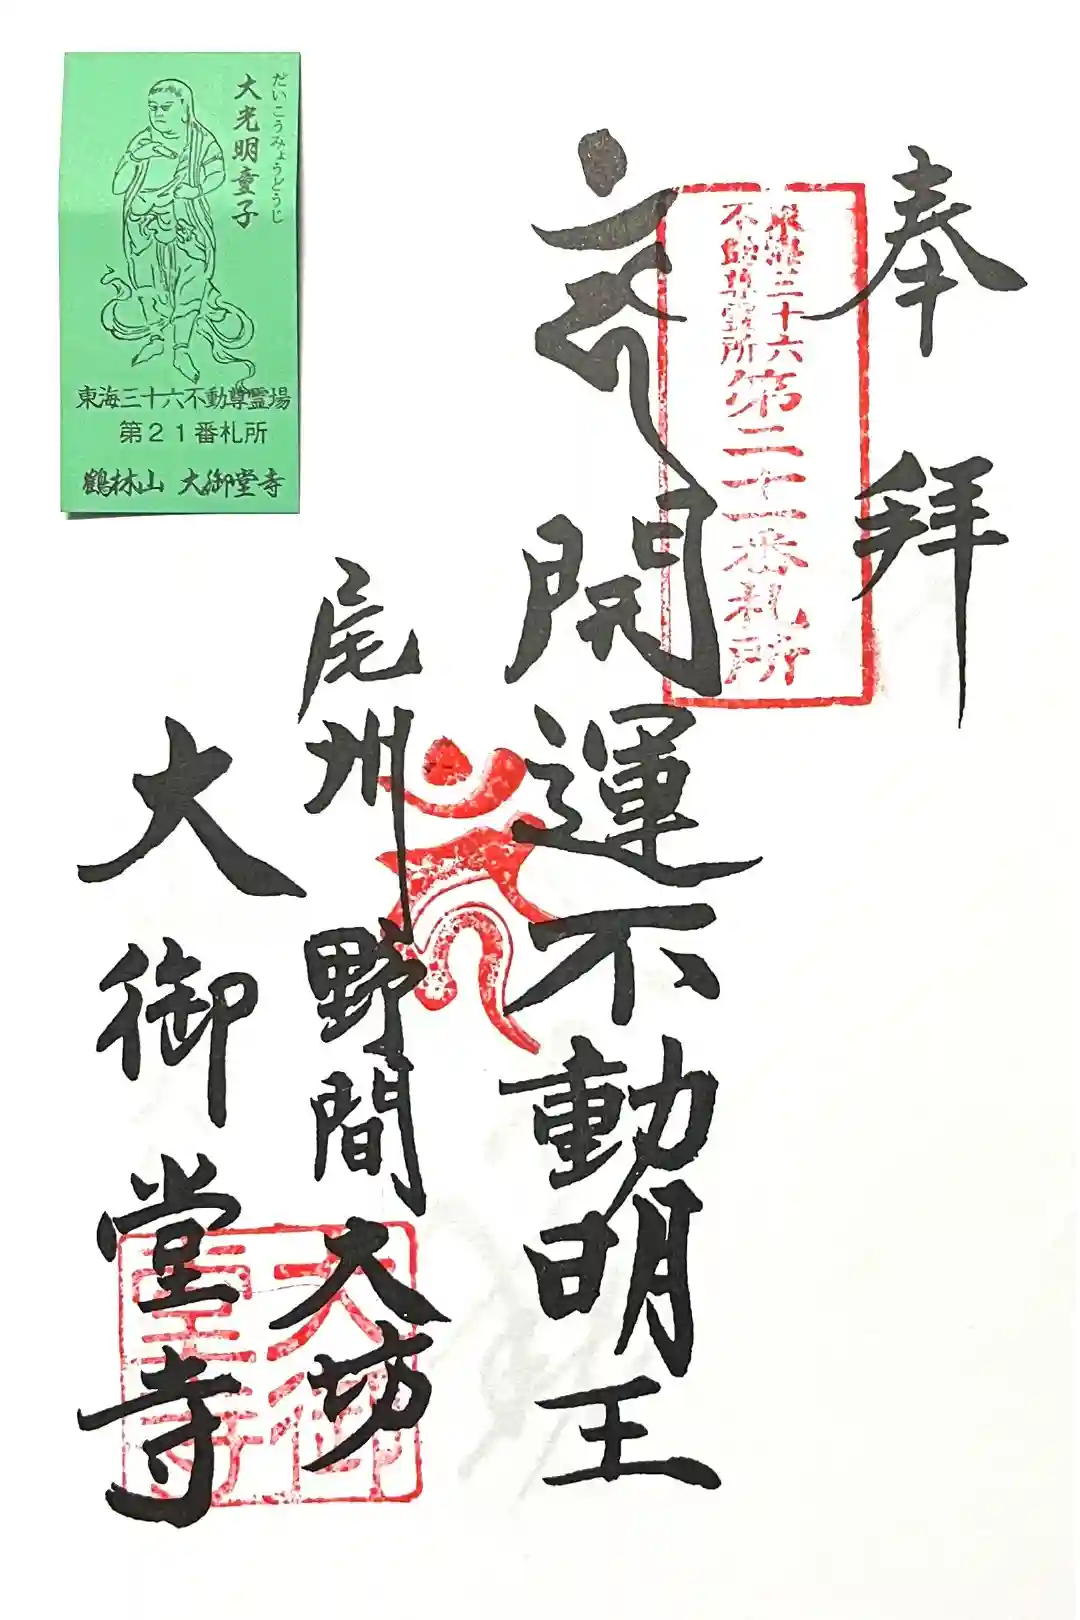 奉拝
東海三十六
不動尊霊所
第二十一番札所
開運不動明王
尾州野間大坊
大御堂寺
大御
堂寺
だいこうみょうどうじ
大光明童子
東海三十六不動尊霊場
第21番札所
鶴林山 大御堂寺